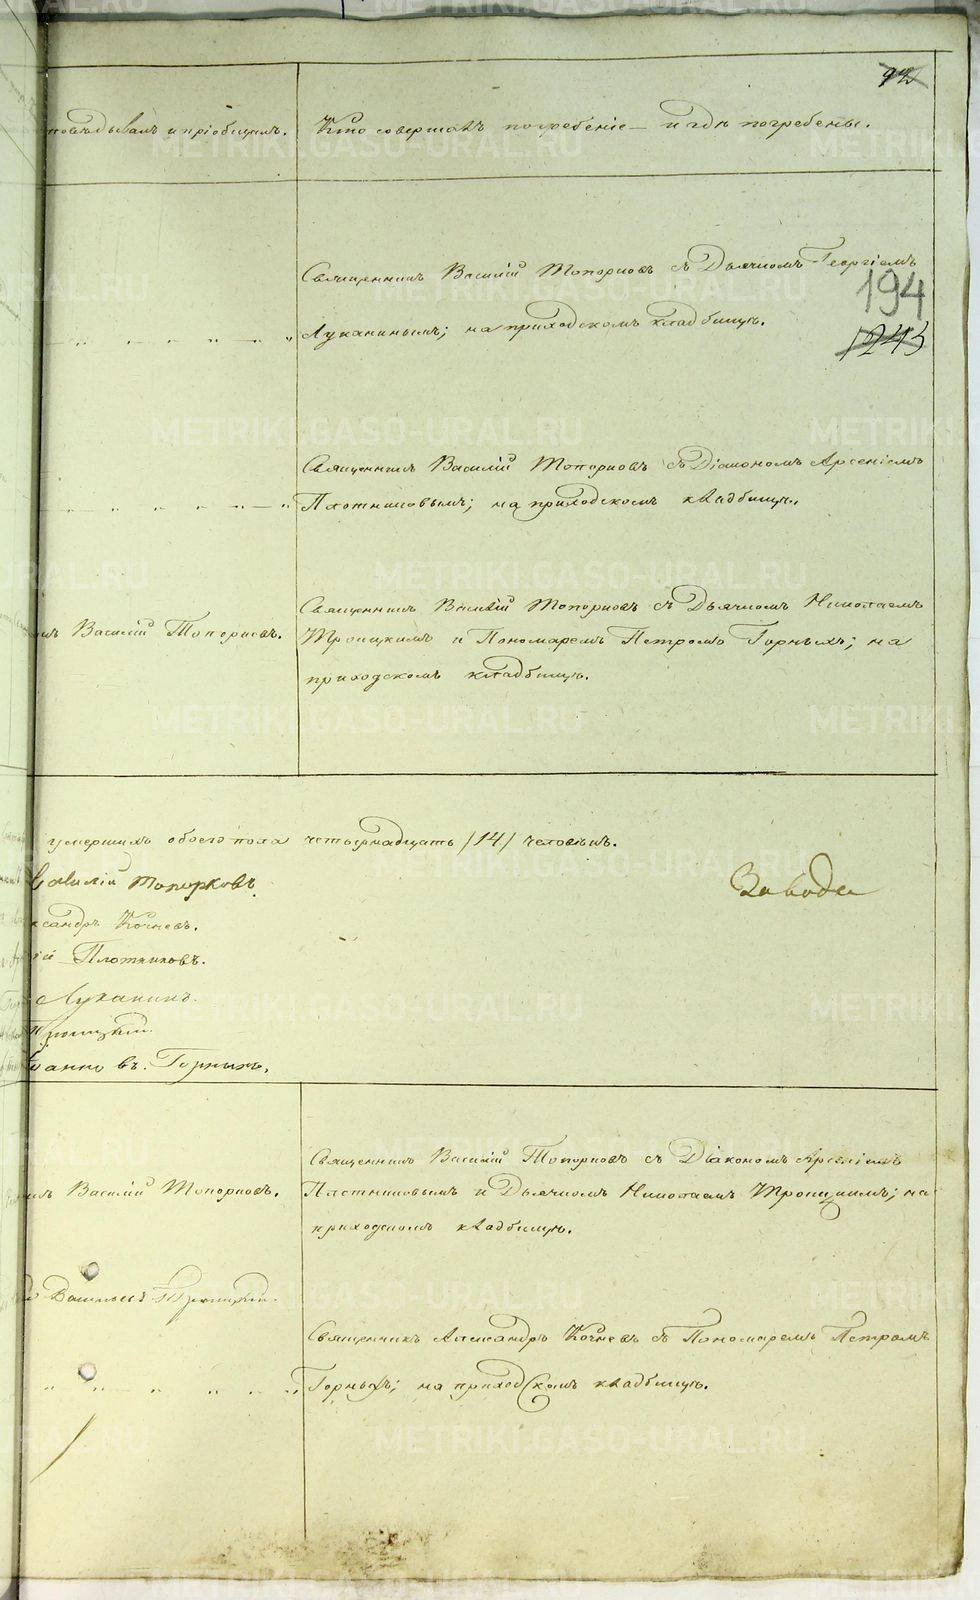 92
повѣдывалъ и пріобщилъ. Кто совершалъ погребеніе и гдѣ погребены.
Священникъ Василій Топорковъ съ Дьячкомъ Георгіемъ
194
Луканинымъ; на приходскомъ кладбищѣ.
1243
Священникъ Василій Топорковъ съ Діакономъ Арсеніемъ
Плотниковымъ; на приходскомъ кладбищѣ.
Священникъ Василій Топорковъ съ Дьячкомъ Николаемъ
Василій Топорковъ. Троицкимъ и Пономаремъ Петромъ Горныхъ; на
приходскомъ кладбищѣ.
умершихъ обоего пола четырнадцать /14/ человѣкъ.
Василій Топорковъ.
Завода
ксандръ Кочневъ.
ій Плотниковъ.
Луканинъ.
Троицкій.
въ. Горныхъ.
Священникъ Василій Топорковъ съ Діакономъ Арсеніемъ
Василій Топорковъ. Плотниковымъ и Дьячкомъ Николаемъ Троицкимъ; на
приходскомъ кладбищѣ.
Васильевъ Троицкій.
Священникъ Александръ Кочневъ съ Пономаремъ Петромъ
Горныхъ; на приходскомъ кладбищѣ.
METRIKI.GASO-URAL.RU